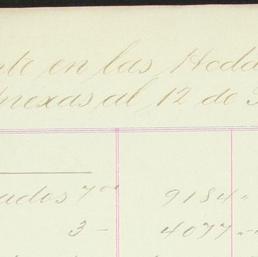 nte en las Hdda
nexas al 12 de
ados 7 00 9184
3 - 4077